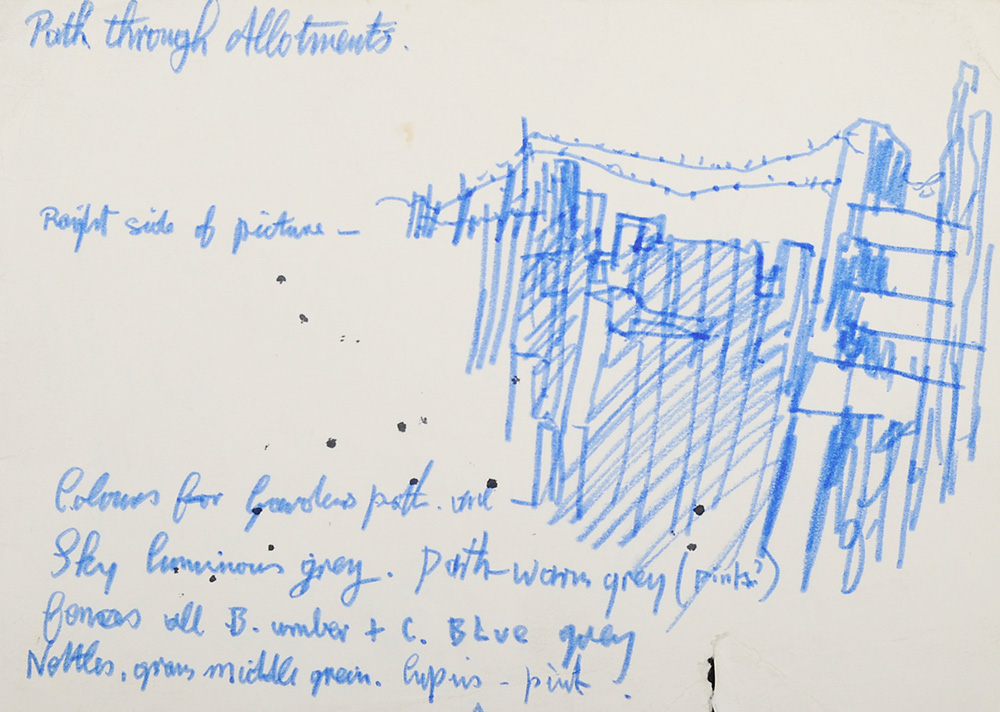 Path through Allotments.
Right side of picture –
Colours for Gardens path. oil –
Sky luminous grey. Path warm grey (pinks?)
fences all B. umber + C. BLue grey
Nettles, grass middle green. lupins - pink.